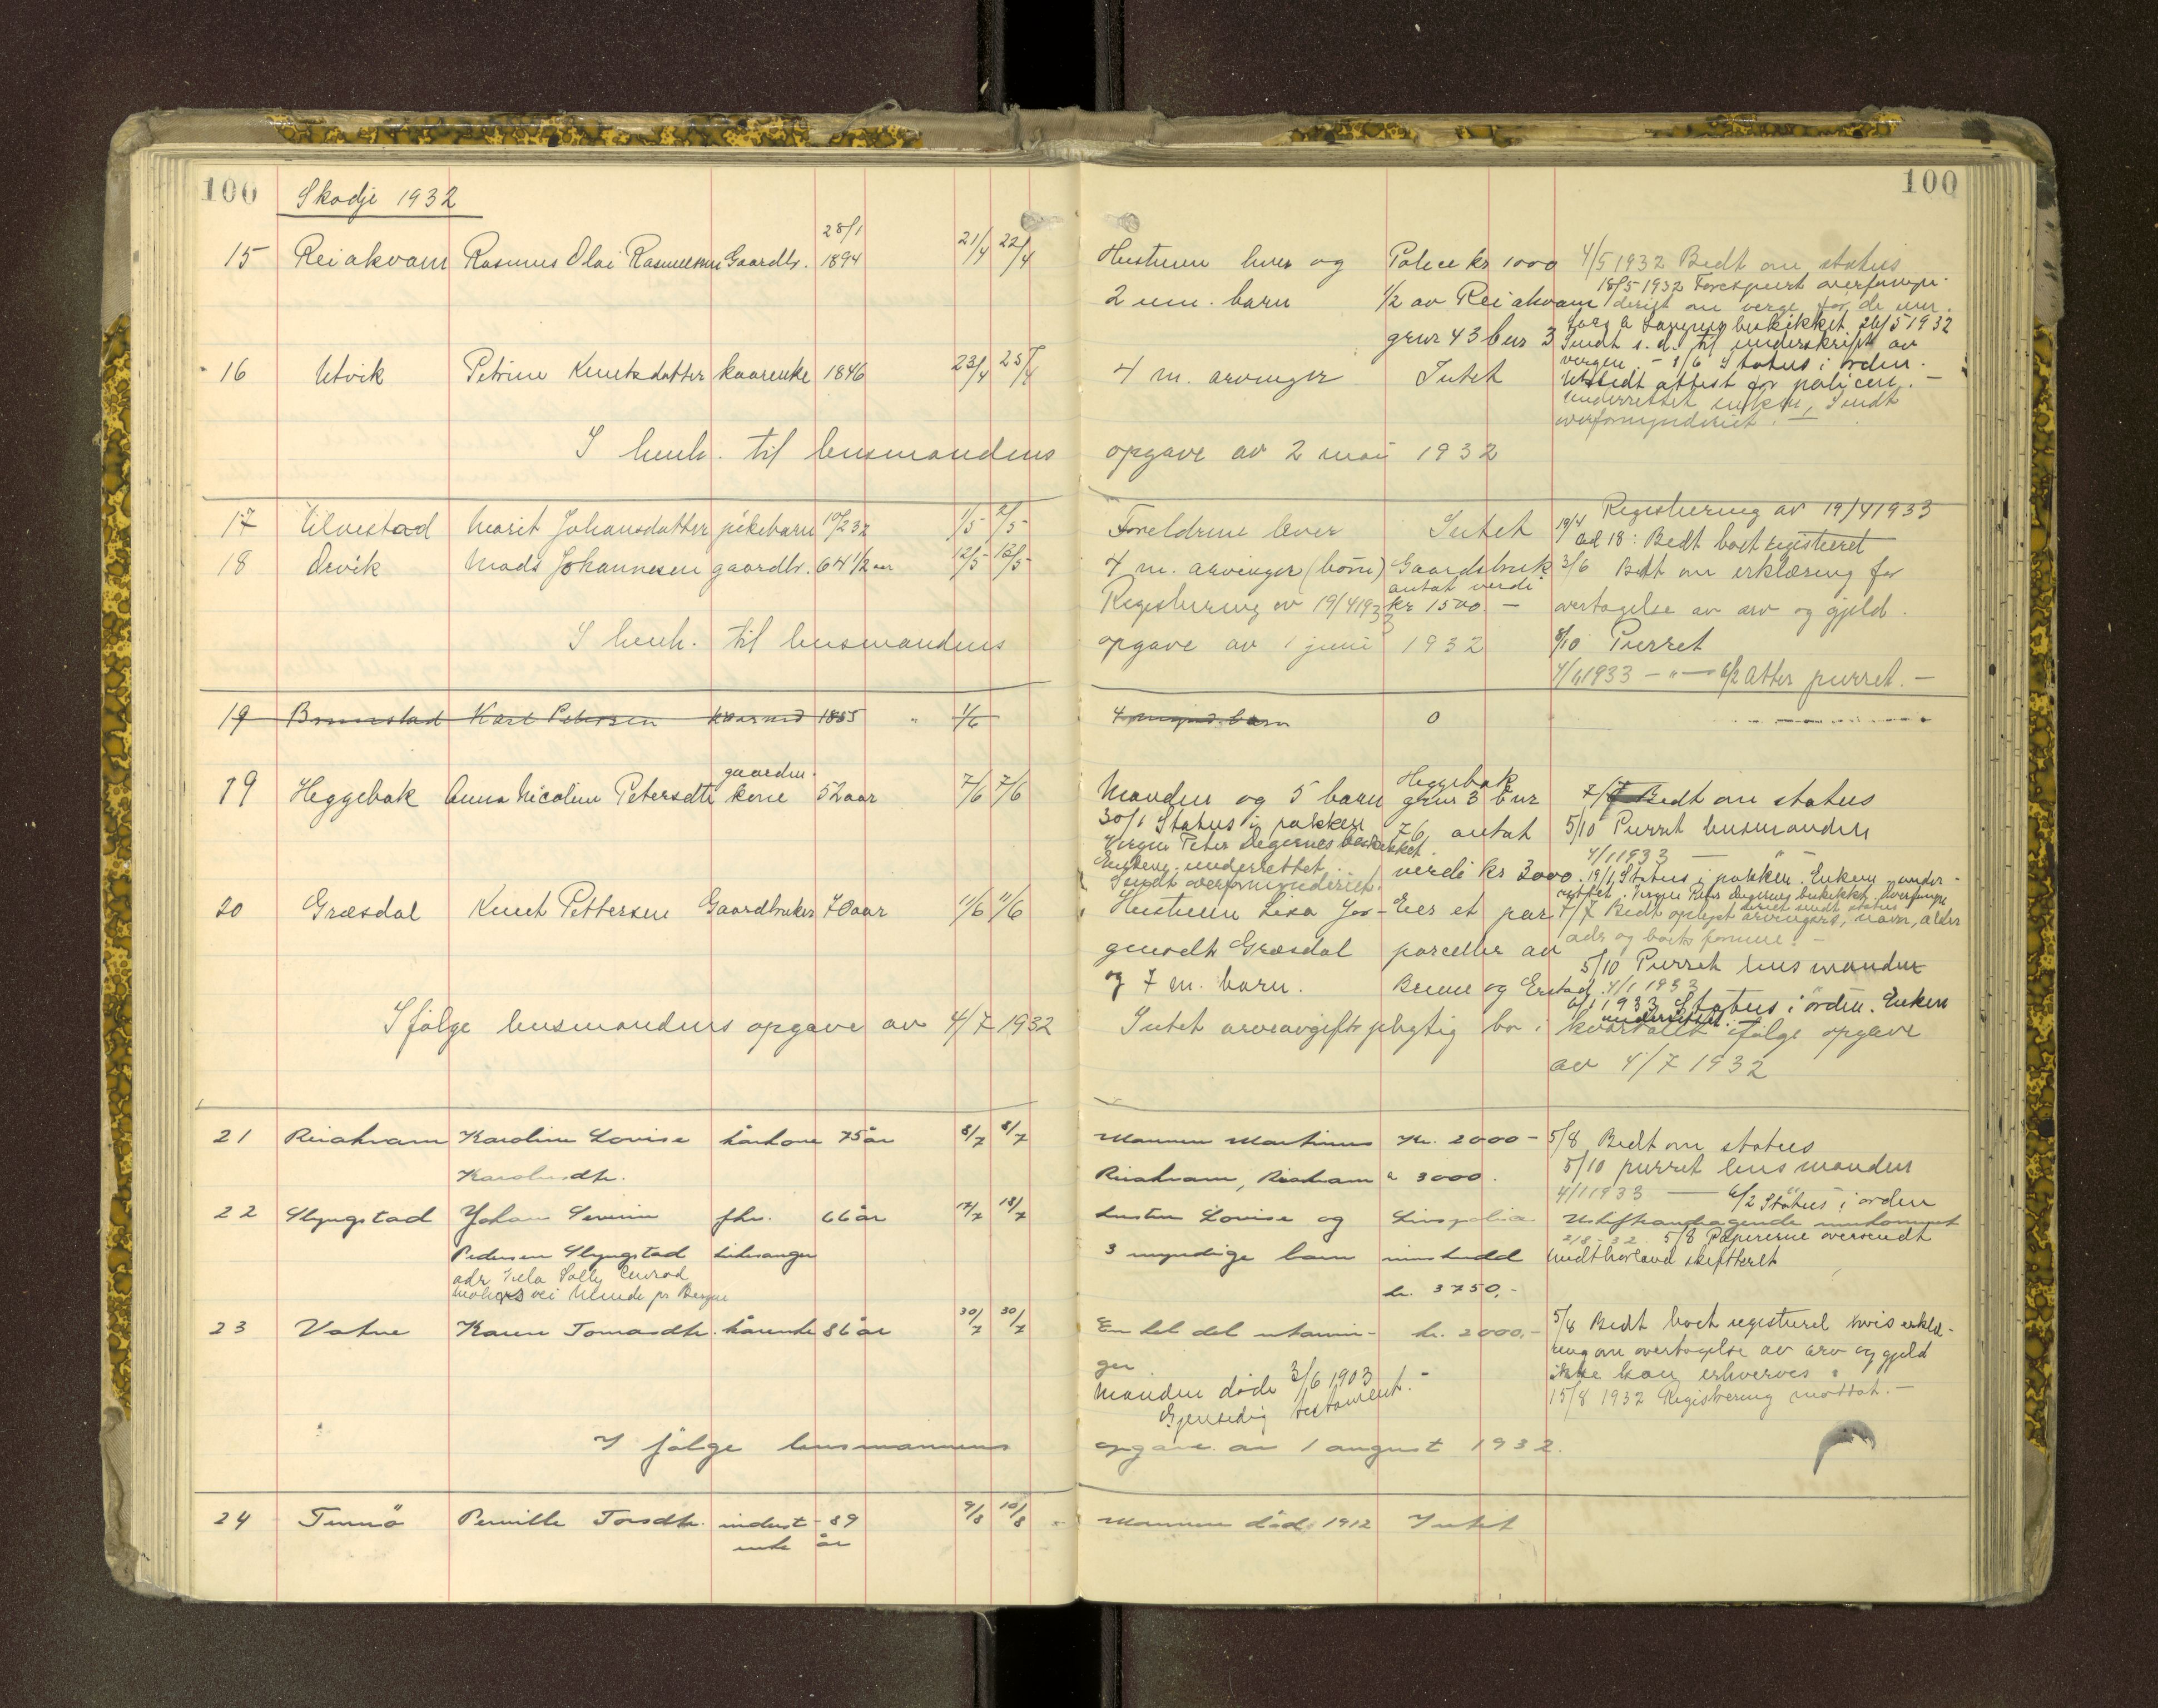 100
Skodje 1932
15 Reiakvam Rasmus Olai Rasmussen Gaardbr. 28/1 1894 21/4 22/4
16 Utvik Petrine Knutsdatter kaarenke 1846 23/4 25/4
I henh. til lensmandens
17 Ulvestad Marit Johansdatter pikebarn 10/2 32 1/5 2/5
18 Orvik Mads Johannesen gaardbr. 64 1/2 aar 12/5 13/5
I henh. til lensmandens
19 Brunstad Karl Petersen kaarmd 1855 " 1/6
19 Heggebak Anna Nicoline Petersdtr gaardm. kone 52 aar 7/6 7/6
20 Græsdal Knut Pettersen Gaardbruker 70 aar 11/6 11/6
Ifølge lensmandens opgave av 4/7 1932
21 Reiakvam Karoline Lovise kårkone 75 år 8/7 8/7
Karolusdtr.
22 Slyngstad Johan Severin fhv. 66 år 17/7 18/7
Pedersen Slyngstad kirkesanger
adr
vei pr Bergen
23 Vatne Karen Tomasdtr. kårenke 86 år 30/7 30/7
I følge lensmannens
24 Tennö Pernille Torsdtr. inderst- 89 9/8 10/8
enke år
100
Hustruen lever og Police kr 1000 4/5 1932 Bedt om status
2 um. barn 1/2 av Reiakvam 18/5 1932 Forespurt overformyn-
deriet om verge for de um.
gnr 43 bnr 3 beskikket 24/5 1932
Sendt s.d. til underskrift av
vergen. - 1/6 Status i orden.
4 m. arvinger Intet Utstedt attest for policen. -
Underrettet enken, Sendt
overformynderiet. -
opgave av 2 mai 1932
Registrering av 19/4 1933
Foreldrene lever Intet 19/4 ad 18: Bedt boet registreret
4 m. arvinger (børn) Gaardsbruk 3/6 Bedt om erklæring for
antat verdi
Registrering av 19/4 1933 kr 1500 - overtagelse av arv og gjeld.
opgave av 1 juni 1932 8/10 Purret
4/1 1933 - " - 6/2 Atter purret. -
4 mynd. barn 0
Manden og 5 barn Heggebak gnr 3 bnr 7/7 Bedt om status
30/1 Status i pakken 76 antat 5/10 Purret lensmanden
Vergen Peter Degernes beskikket. 4/1 1933 - " -
Enken underrettet. verdi kr 3000. 19/1 Status i pakken. Enken under-
Sendt overformynderiet. rettet. Vergen Peter Degernes beskikket. Overformyn-
deriet sendt status
Hustruen Lisa Jør- Eier et par 7/7 Bedt oplyst arvingers, navn, alder
gensdtr Græsdal parceller av adr og boets formue. -
og 7 m. barn. Brune og Erstad. 5/10 Purret lensmanden
4/1 1933
6/1 1933 Status i orden. Enken
underrettet.
Intet arveavgiftspligtig bo i kvartalet ifølge opgave
av 4/7 1932
Mannen Martinus Kr. 2000 - 5/8 Bedt om status
Reiakvam, Reiakvam " 3000. 5/10 purret lensmanden
4/1 1933 - " 6/2 Status i orden
Lovise og Livspolise Uskifteandragende innkommet
2/8 - 32. 5/8 Papirerne oversendt
3 myndige barn innskudd Midthorland skifterett
kr. 3750,-
En hel del utarvin- kr. 2000,- 5/8 Bedt boet registrert hvis erklæ-
ger ring om overtagelse av arv og gjeld
Manden døde 3/6 1903 ikke kan erhverves.
Gjensidig testament. - 15/8 1932 Registrering mottat. -
opgave av 1 august 1932.
Mannen död 1912 Intet